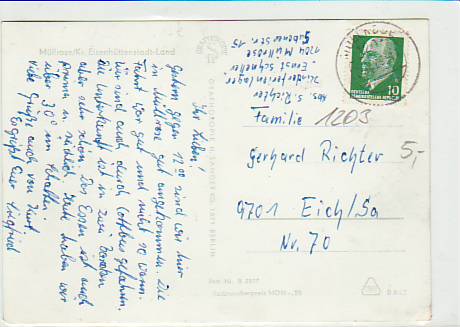 Müllrose/Kr. Eisenhüttenstadt-Land
Ihr Lieben!
Gestern gegen 12⁰⁰ sind wir hier
in Müllrose gut angekommen. Die
Fahrt war gut und nicht so warm.
wir sind auch durch Cottbus gefahren.
Die Unterkunft ist in zwei Baracken
aber sehr schön. Das Essen ist auch
prima u. reichlich. Heute haben wir
über 30° im Schatten.
Viele Grüße auch von Kurt,
Es grüßt Euer Siegfried
Abs. S. Richter
Kinderferienlager
Ernst Schneller
1204 Müllrose
Gubener Str. 15
DEUTSCHE
DEMOKRATISCHE REPUBLIK 10
Familie
1203
Gerhard Richter
5,-
9701 Eich/Sa
Nr. 70
Best.-Nr. B 2577
Verbraucherpreis MDN -,20